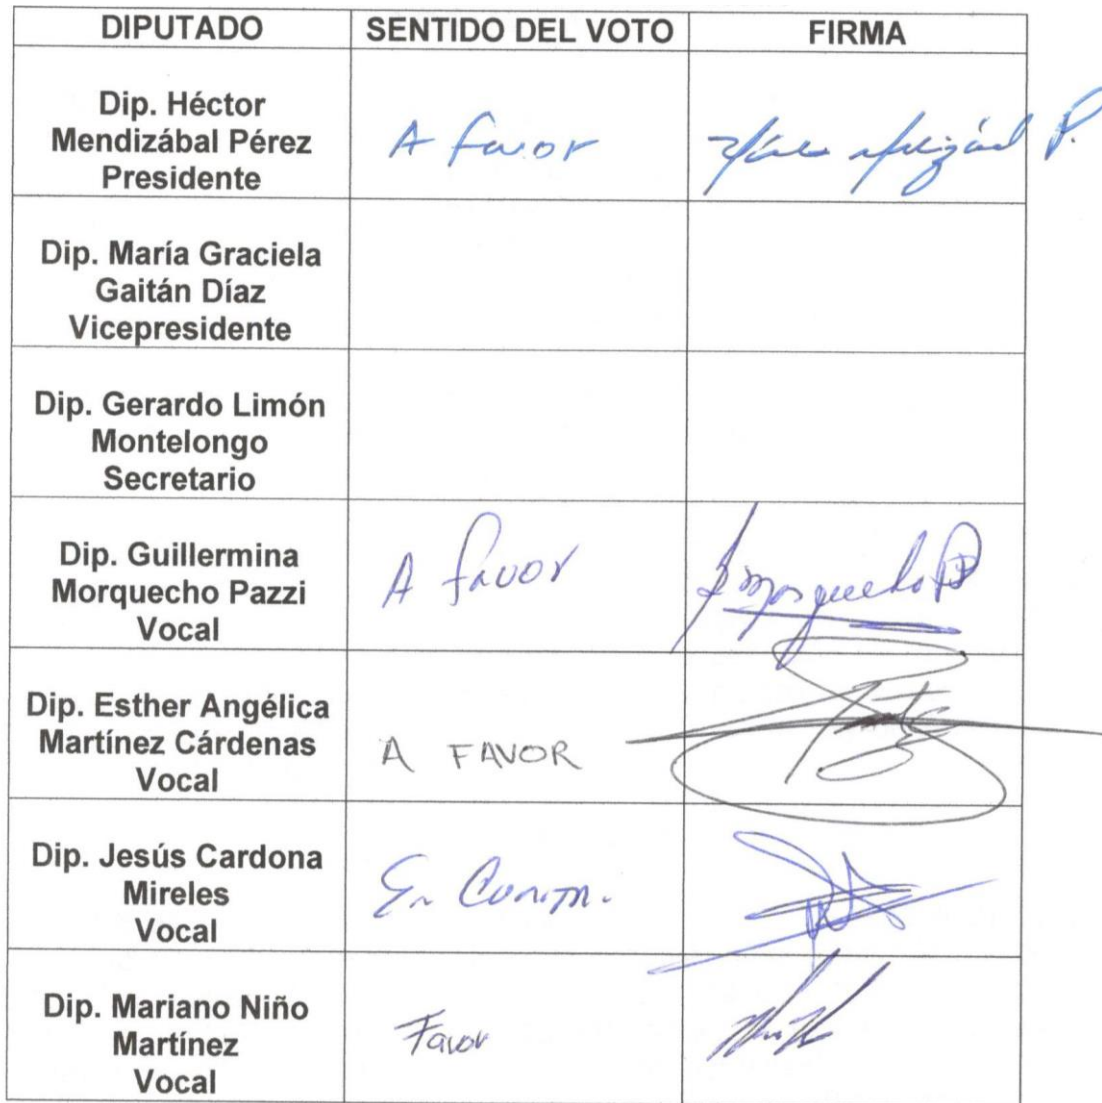 DIPUTADO SENTIDO DEL VOTO FIRMA
Dip. Héctor
Mendizábal Pérez
Presidente
A favor
Dip. María Graciela
Gaitán Díaz
Vicepresidente
Dip. Gerardo Limón
Montelongo
Secretario
Dip. Guillermina
Morquecho Pazzi
Vocal
A favor
Morquecho P
Dip. Esther Angélica
Martínez Cárdenas
Vocal
A FAVOR
Dip. Jesús Cardona
Mireles
Vocal
En
Dip. Mariano Niño
Martínez
Vocal
Favor